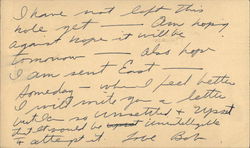 I have not left this
hole yet — Am hoping
against hope it will be
tomorrow — also hope
I am sent East —
Someday — when I feel better
I will write you a letter
but I'm so unsettled & upset
that it would be unintelligible
to attempt it. Love Bob